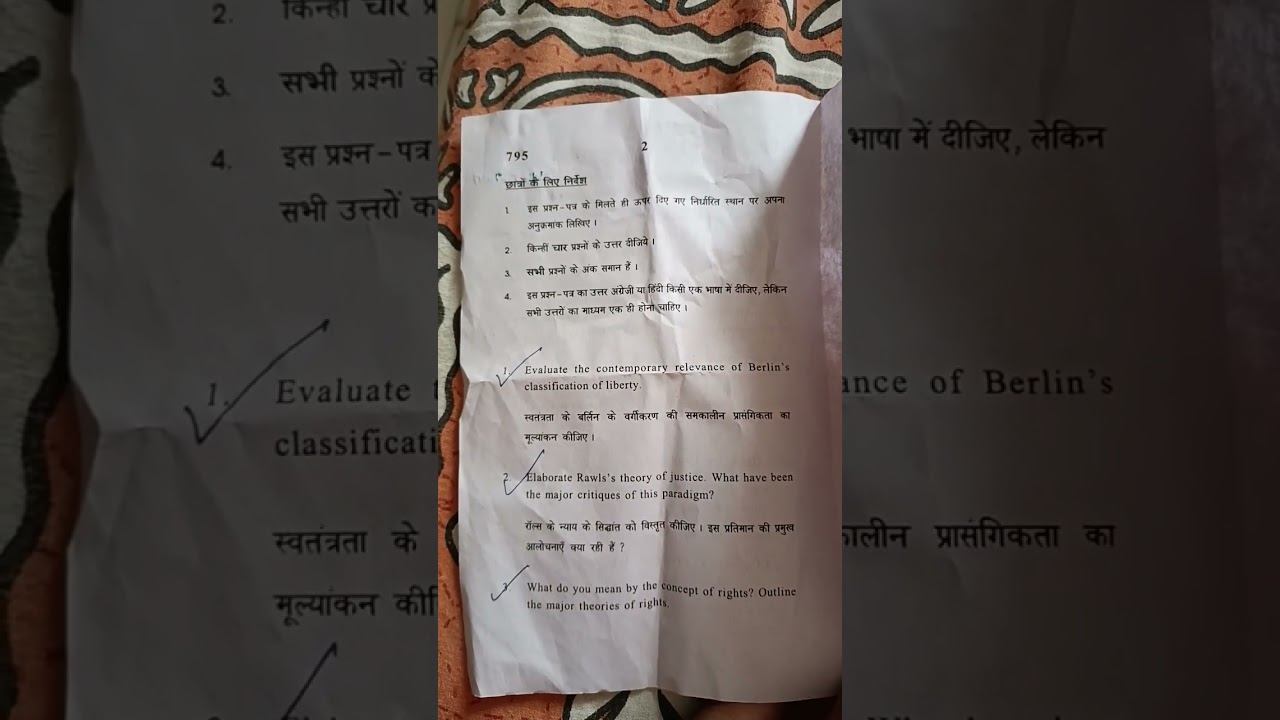 795
2
छात्रों के लिए निर्देश
1. इस प्रश्न-पत्र के मिलते ही ऊपर दिए गए निर्धारित स्थान पर अपना
अनुक्रमांक लिखिए ।
2. किन्हीं चार प्रश्नों के उत्तर दीजिये ।
3. सभी प्रश्नों के अंक समान हैं ।
4. इस प्रश्न-पत्र का उत्तर अंग्रेजी या हिंदी किसी एक भाषा में दीजिए, लेकिन
सभी उत्तरों का माध्यम एक ही होना चाहिए ।
1. Evaluate the contemporary relevance of Berlin's
classification of liberty.
स्वतंत्रता के बर्लिन के वर्गीकरण की समकालीन प्रासंगिकता का
मूल्यांकन कीजिए ।
2. Elaborate Rawls's theory of justice. What have been
the major critiques of this paradigm?
रॉल्स के न्याय के सिद्धांत को विस्तृत कीजिए । इस प्रतिमान की प्रमुख
आलोचनाएँ क्या रही हैं ?
3. What do you mean by the concept of rights? Outline
the major theories of rights.